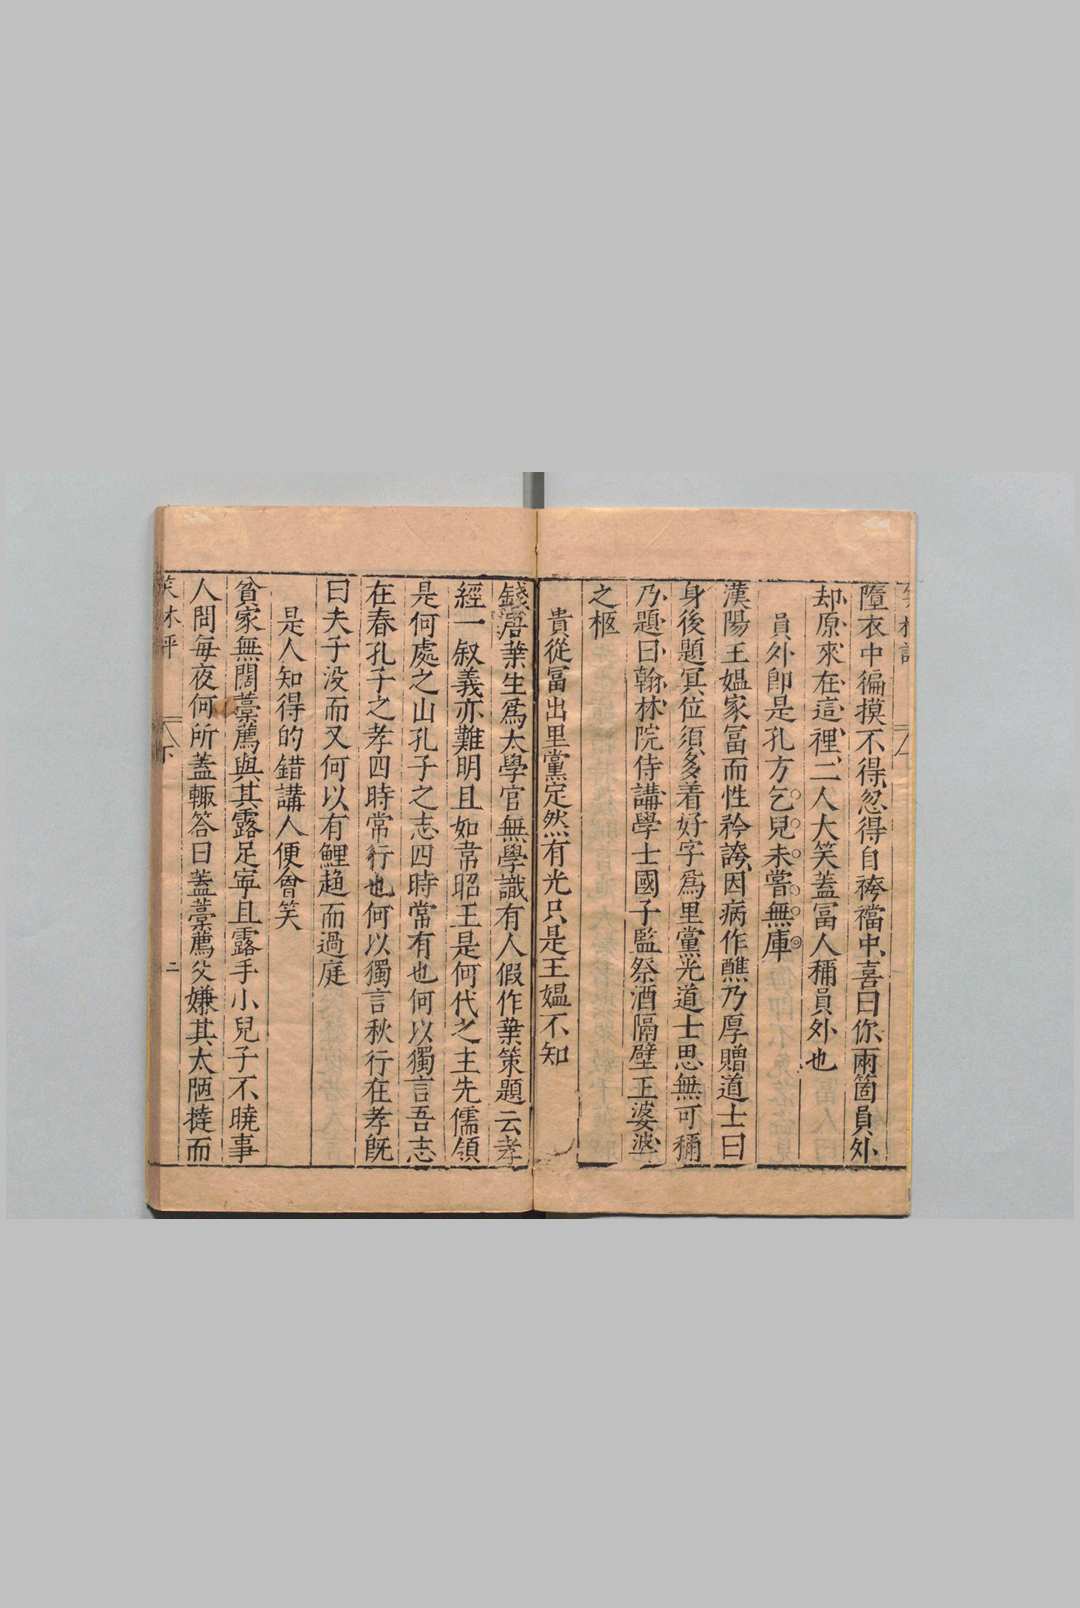 墮衣中徧摸不得忽得自袴襠中喜曰你兩箇員外
却原來在這裡二人大笑蓋冨人稱員外也
員外即是孔方乞兒未嘗無庫
漢陽王媼家冨而性矜誇因病作醮乃厚贈道士曰
身後題冥位須多着好字爲里黨光道士思無可稱
乃題曰翰林院侍講學士國子監祭酒隔壁王婆婆
之柩
貴從冨出里黨定然有光只是王媼不知
錢唐葉生爲太學官無學識有人假作葉策題云孝
經一叙義亦難明且如韋昭王是何代之主先儒領
是何處之山孔子之志四時常有也何以獨言吾志
在春孔子之孝四時常行也何以獨言秋行在孝旣
曰夫子没而又何以有鯉趨而過庭
是人知得的錯講人便會笑
貧家無闊藁薦與其露足寧且露手小兒子不曉事
人問每夜何所蓋輙答曰蓋藁薦父嫌其太陋撻而
笑林評
下
二